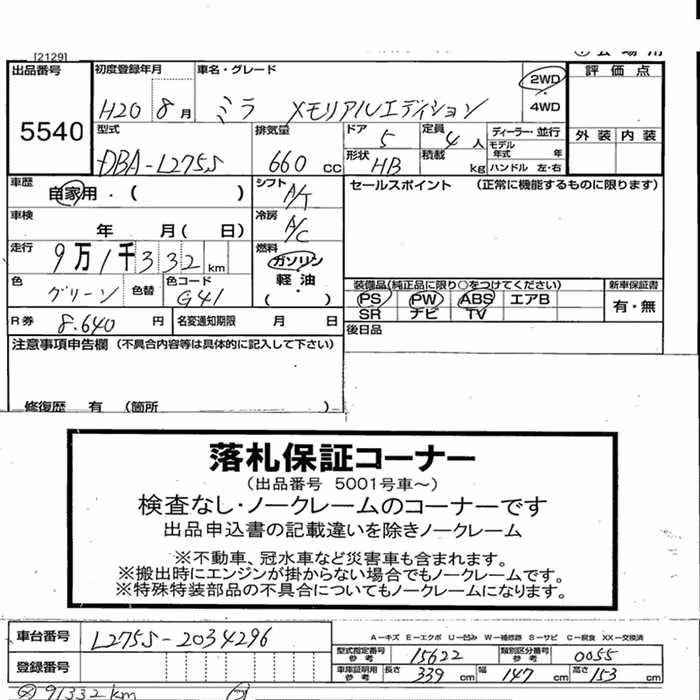 [2129]
出品番号 5540
初度登録年月 H20 8月
車名・グレード ミラ メモリアルエディション
2WD
4WD
評価点
外装 内装
型式 DBA-L275S
排気量 660 CC
ドア 5
定員 4 人
ディーラー・並行
モデル年式 年
形状 HB
積載 kg
ハンドル 左・右
車歴 自家用・( )
シフト A/T
セールスポイント (正常に機能するものに限ります)
車検 年 月( 日)
冷房 A/C
走行 9万1千332 km
燃料 ガソリン
軽油
( )
色 グリーン
色替
色コード G41
装備品(純正品に限り○をつけてください)
新車保証書
PS PW ABS エアB
SR ナビ TV
有・無
R券 8.640 円
名変通知期限 月 日
後日品
注意事項申告欄 (不具合内容等は具体的に記入して下さい)
修復歴 有 (箇所 )
落札保証コーナー
(出品番号 5001号車~)
検査なし・ノークレームのコーナーです
出品申込書の記載違いを除きノークレーム
※不動車、冠水車など災害車も含まれます。
※搬出時にエンジンが掛からない場合でもノークレームです。
※特殊特装部品の不具合についてもノークレームになります。
車台番号 L275S-2034296
A-キズ E-エクボ U-凹み W-補修跡 S-サビ C-腐食 XX-交換済
型式指定番号 参考 15622
類別区分番号 参考 0055
登録番号
車庫証明用 参考 長さ 339 cm 幅 147 cm 高さ 153 cm
91332 km